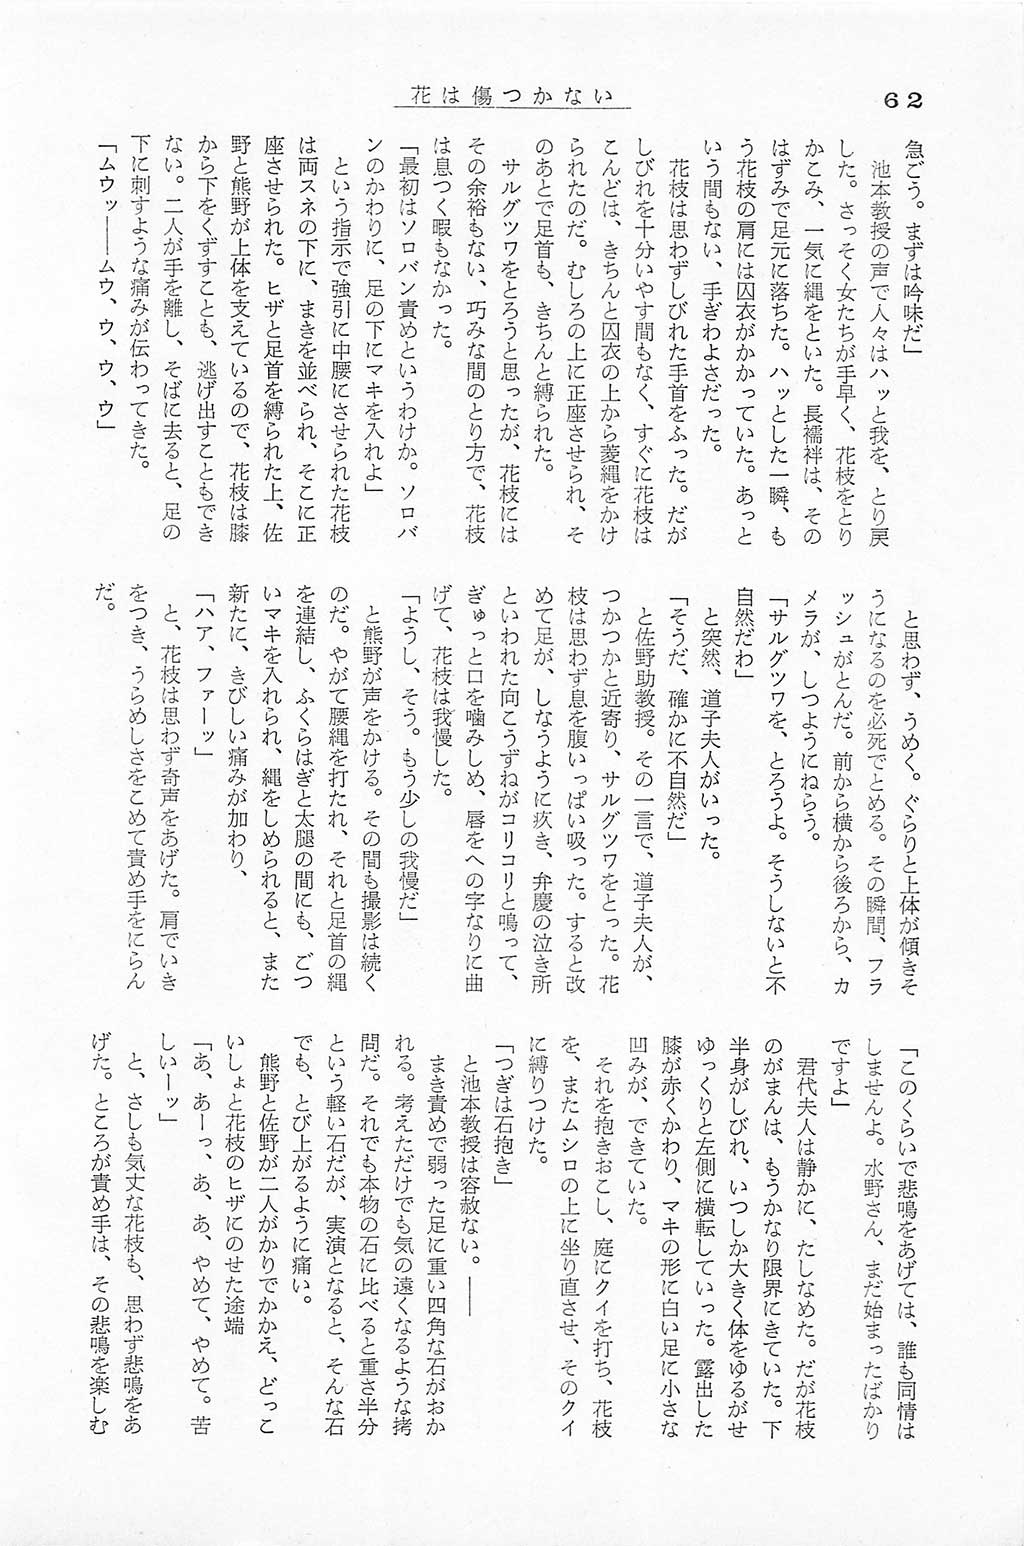 62
花は傷つかない
急ごう。まずは吟味だ」
池本教授の声で人々はハッと我を、とり戻
した。さっそく女たちが手早く、花枝をとり
かこみ、一気に縄をといた。長襦袢は、その
はずみで足元に落ちた。ハッとした一瞬、も
う花枝の肩には囚衣がかかっていた。あっと
いう間もない、手ぎわよさだった。
花枝は思わずしびれた手首をふった。だが
しびれを十分いやす間もなく、すぐに花枝は
こんどは、きちんと囚衣の上から菱縄をかけ
られたのだ。むしろの上に正座させられ、そ
のあとで足首も、きちんと縛られた。
サルグツワをとろうと思ったが、花枝には
その余裕もない、巧みな間のとり方で、花枝
は息つく暇もなかった。
「最初はソロバン責めというわけか。ソロバ
ンのかわりに、足の下にマキを入れよ」
という指示で強引に中腰にさせられた花枝
は両スネの下に、まきを並べられ、そこに正
座させられた。ヒザと足首を縛られた上、佐
野と熊野が上体を支えているので、花枝は膝
から下をくずすことも、逃げ出すこともでき
ない。二人が手を離し、そばに去ると、足の
下に刺すような痛みが伝わってきた。
「ムウッ――ムウ、ウ、ウ、ウ」
と思わず、うめく。ぐらりと上体が傾きそ
うになるのを必死でとめる。その瞬間、フラ
ッシュがとんだ。前から横から後ろから、カ
メラが、しつようにねらう。
「サルグツワを、とろうよ。そうしないと不
自然だわ」
と突然、道子夫人がいった。
「そうだ、確かに不自然だ」
と佐野助教授。その一言で、道子夫人が、
つかつかと近寄り、サルグツワをとった。花
枝は思わず息を腹いっぱい吸った。すると改
めて足が、しなうように疚き、弁慶の泣き所
といわれた向こうずねがコリコリと鳴って、
ぎゅっと口を噛みしめ、唇をへの字なりに曲
げて、花枝は我慢した。
「ようし、そう。もう少しの我慢だ」
と熊野が声をかける。その間も撮影は続く
のだ。やがて腰縄を打たれ、それと足首の縄
を連結し、ふくらはぎと太腿の間にも、ごつ
いマキを入れられ、縄をしめられると、また
新たに、きびしい痛みが加わり、
「ハア、ファーッ」
と、花枝は思わず奇声をあげた。肩でいき
をつき、うらめしさをこめて責め手をにらん
だ。
「このくらいで悲鳴をあげては、誰も同情は
しませんよ。水野さん、まだ始まったばかり
ですよ」
君代夫人は静かに、たしなめた。だが花枝
のがまんは、もうかなり限界にきていた。下
半身がしびれ、いつしか大きく体をゆるがせ
ゆっくりと左側に横転していった。露出した
膝が赤くかわり、マキの形に白い足に小さな
凹みが、できていた。
それを抱きおこし、庭にクイを打ち、花枝
を、またムシロの上に坐り直させ、そのクイ
に縛りつけた。
「つぎは石抱き」
と池本教授は容赦ない。――
まき責めで弱った足に重い四角な石がおか
れる。考えただけでも気の遠くなるような拷
問だ。それでも本物の石に比べると重さ半分
という軽い石だが、実演となると、そんな石
でも、とび上がるように痛い。
熊野と佐野が二人がかりでかかえ、どっこ
いしょと花枝のヒザにのせた途端
「あ、あーっ、あ、あ、やめて、やめて。苦
しいーッ」
と、さしも気丈な花枝も、思わず悲鳴をあ
げた。ところが責め手は、その悲鳴を楽しむ